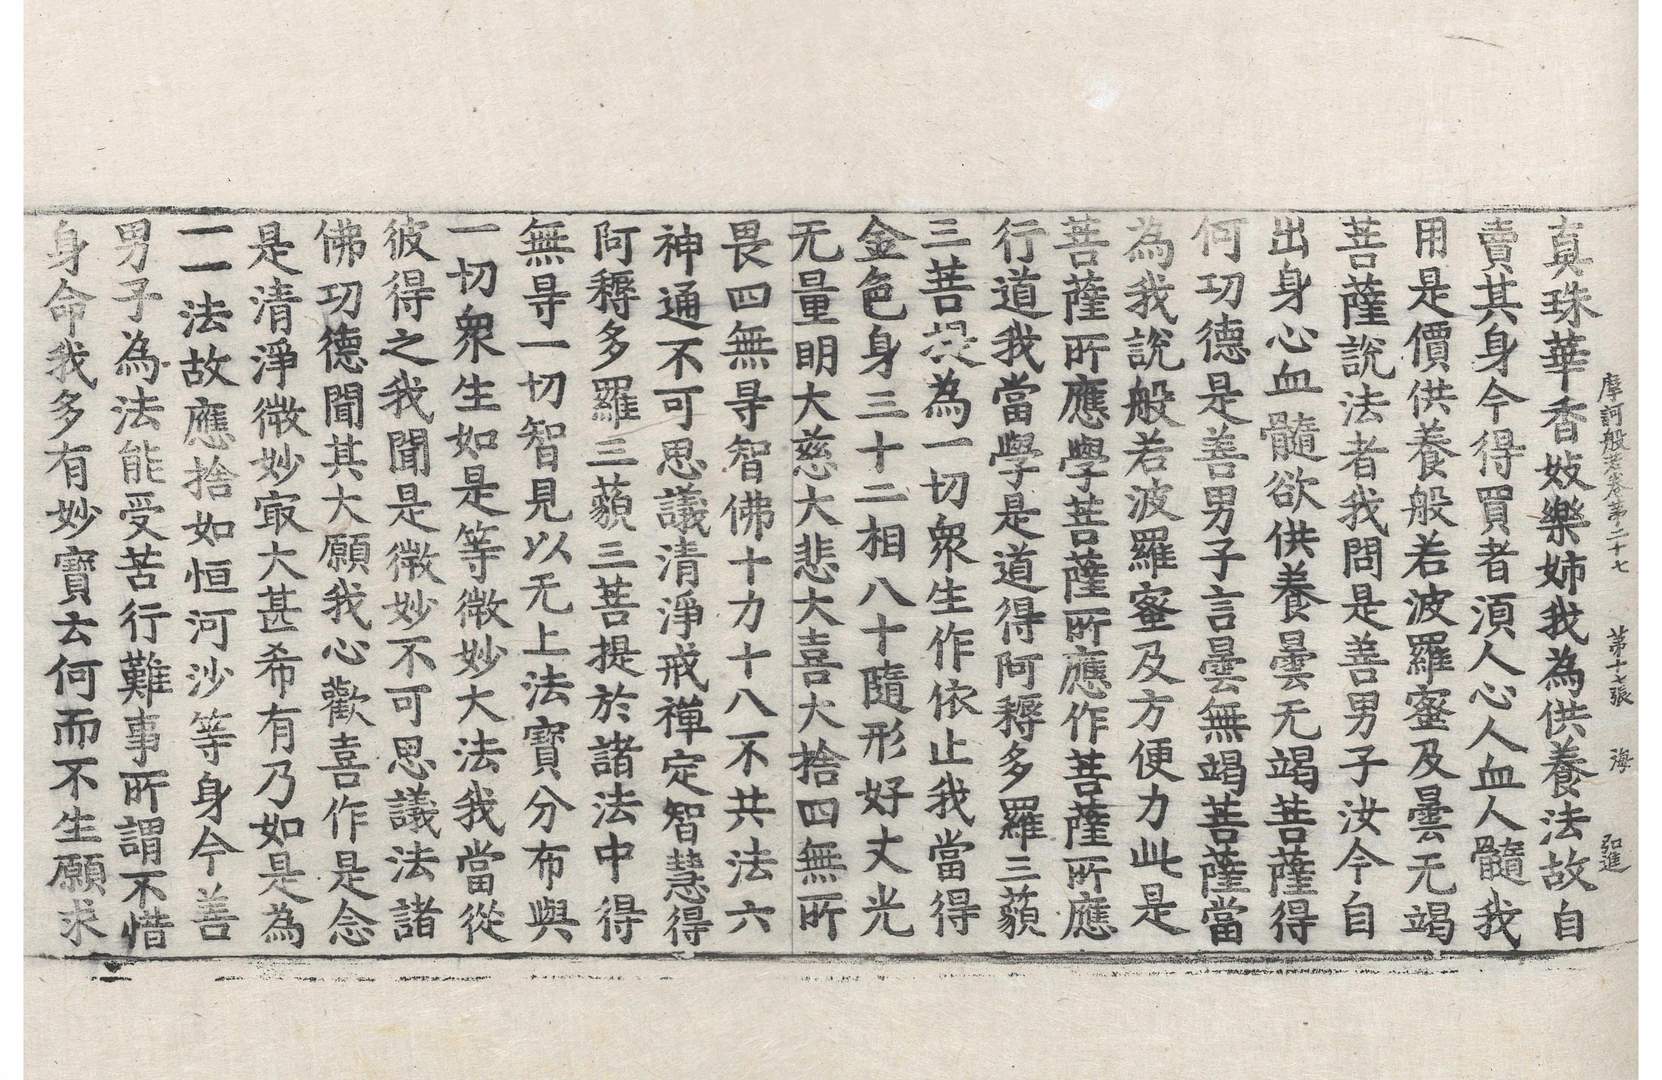 摩訶般若卷第二十七　第十七張　海　弘進
真珠華香妓樂姊我為供養法故自
賣其身今得買者湏人心人血人髓我
用是價供養般若波羅蜜及曇无竭
菩薩說法者我問是善男子汝今自
出身心血髓欲供養曇无竭菩薩得
何功德是善男子言曇無竭菩薩當
為我說般若波羅蜜及方便力此是
菩薩所應學菩薩所應作菩薩所應
行道我當學是道得阿耨多羅三藐
三菩提為一切衆生作依止我當得
金色身三十二相八十隨形好丈光
无量明大慈大悲大喜大捨四無所
畏四無㝵智佛十力十八不共法六
神通不可思議清淨戒禪定智慧得
阿耨多羅三藐三菩提於諸法中得
無㝵一切智見以无上法寶分布與
一切衆生如是等微妙大法我當從
彼得之我聞是微妙不可思議法諸
佛功德聞其大願我心歡喜作是念
是清淨微妙㝡大甚希有乃如是為
一一法故應捨如恒河沙等身今善
男子為法能受苦行難事所謂不惜
身命我多有妙寶云何而不生願求